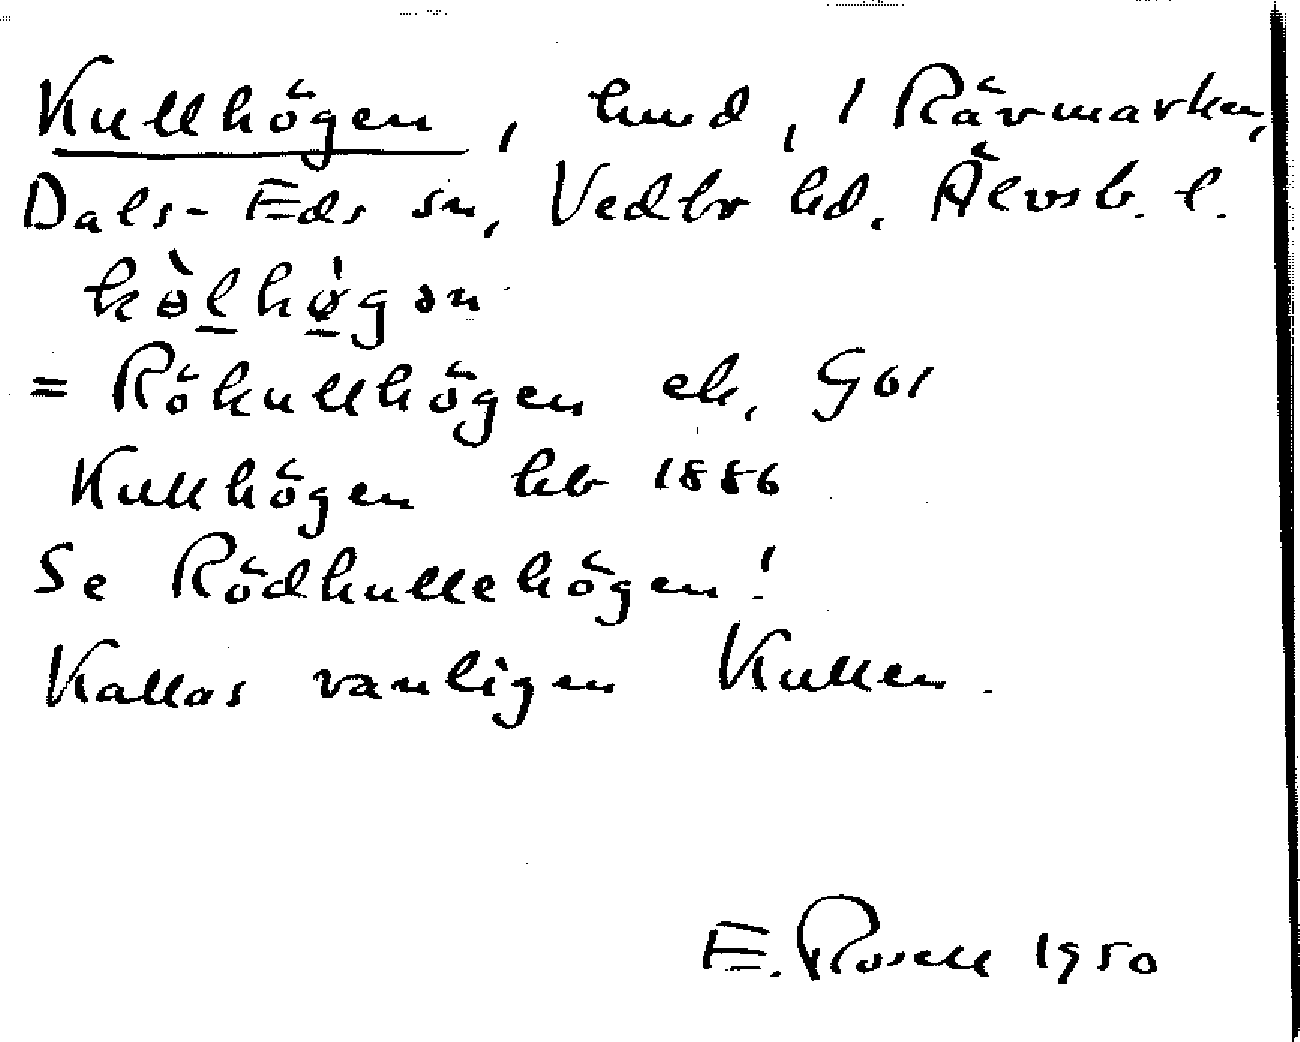 Kullhögen, hmd, 1 Rävmarken,
Dals-Eds sn, Vedbo hd. Älvsb. l.
= Rökullhögen ek, Gsr
Kullhögen hb 1886
Se Rödkullehögen!
Kallas vanligen Kullen.
E. Rosell 1950